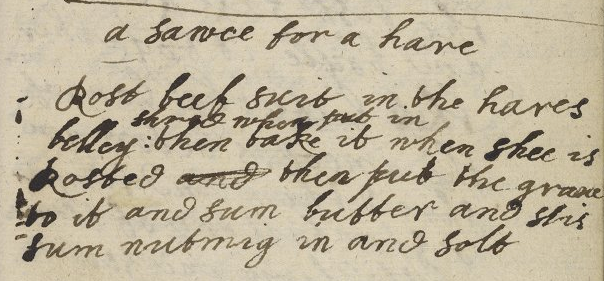 a sawce for a hare
Rost beef suit in the hares
shred when put in
belley: then take it when shee is
Rosted and then put the gravie
to it and sum butter and stir
sum nutmig in and solt